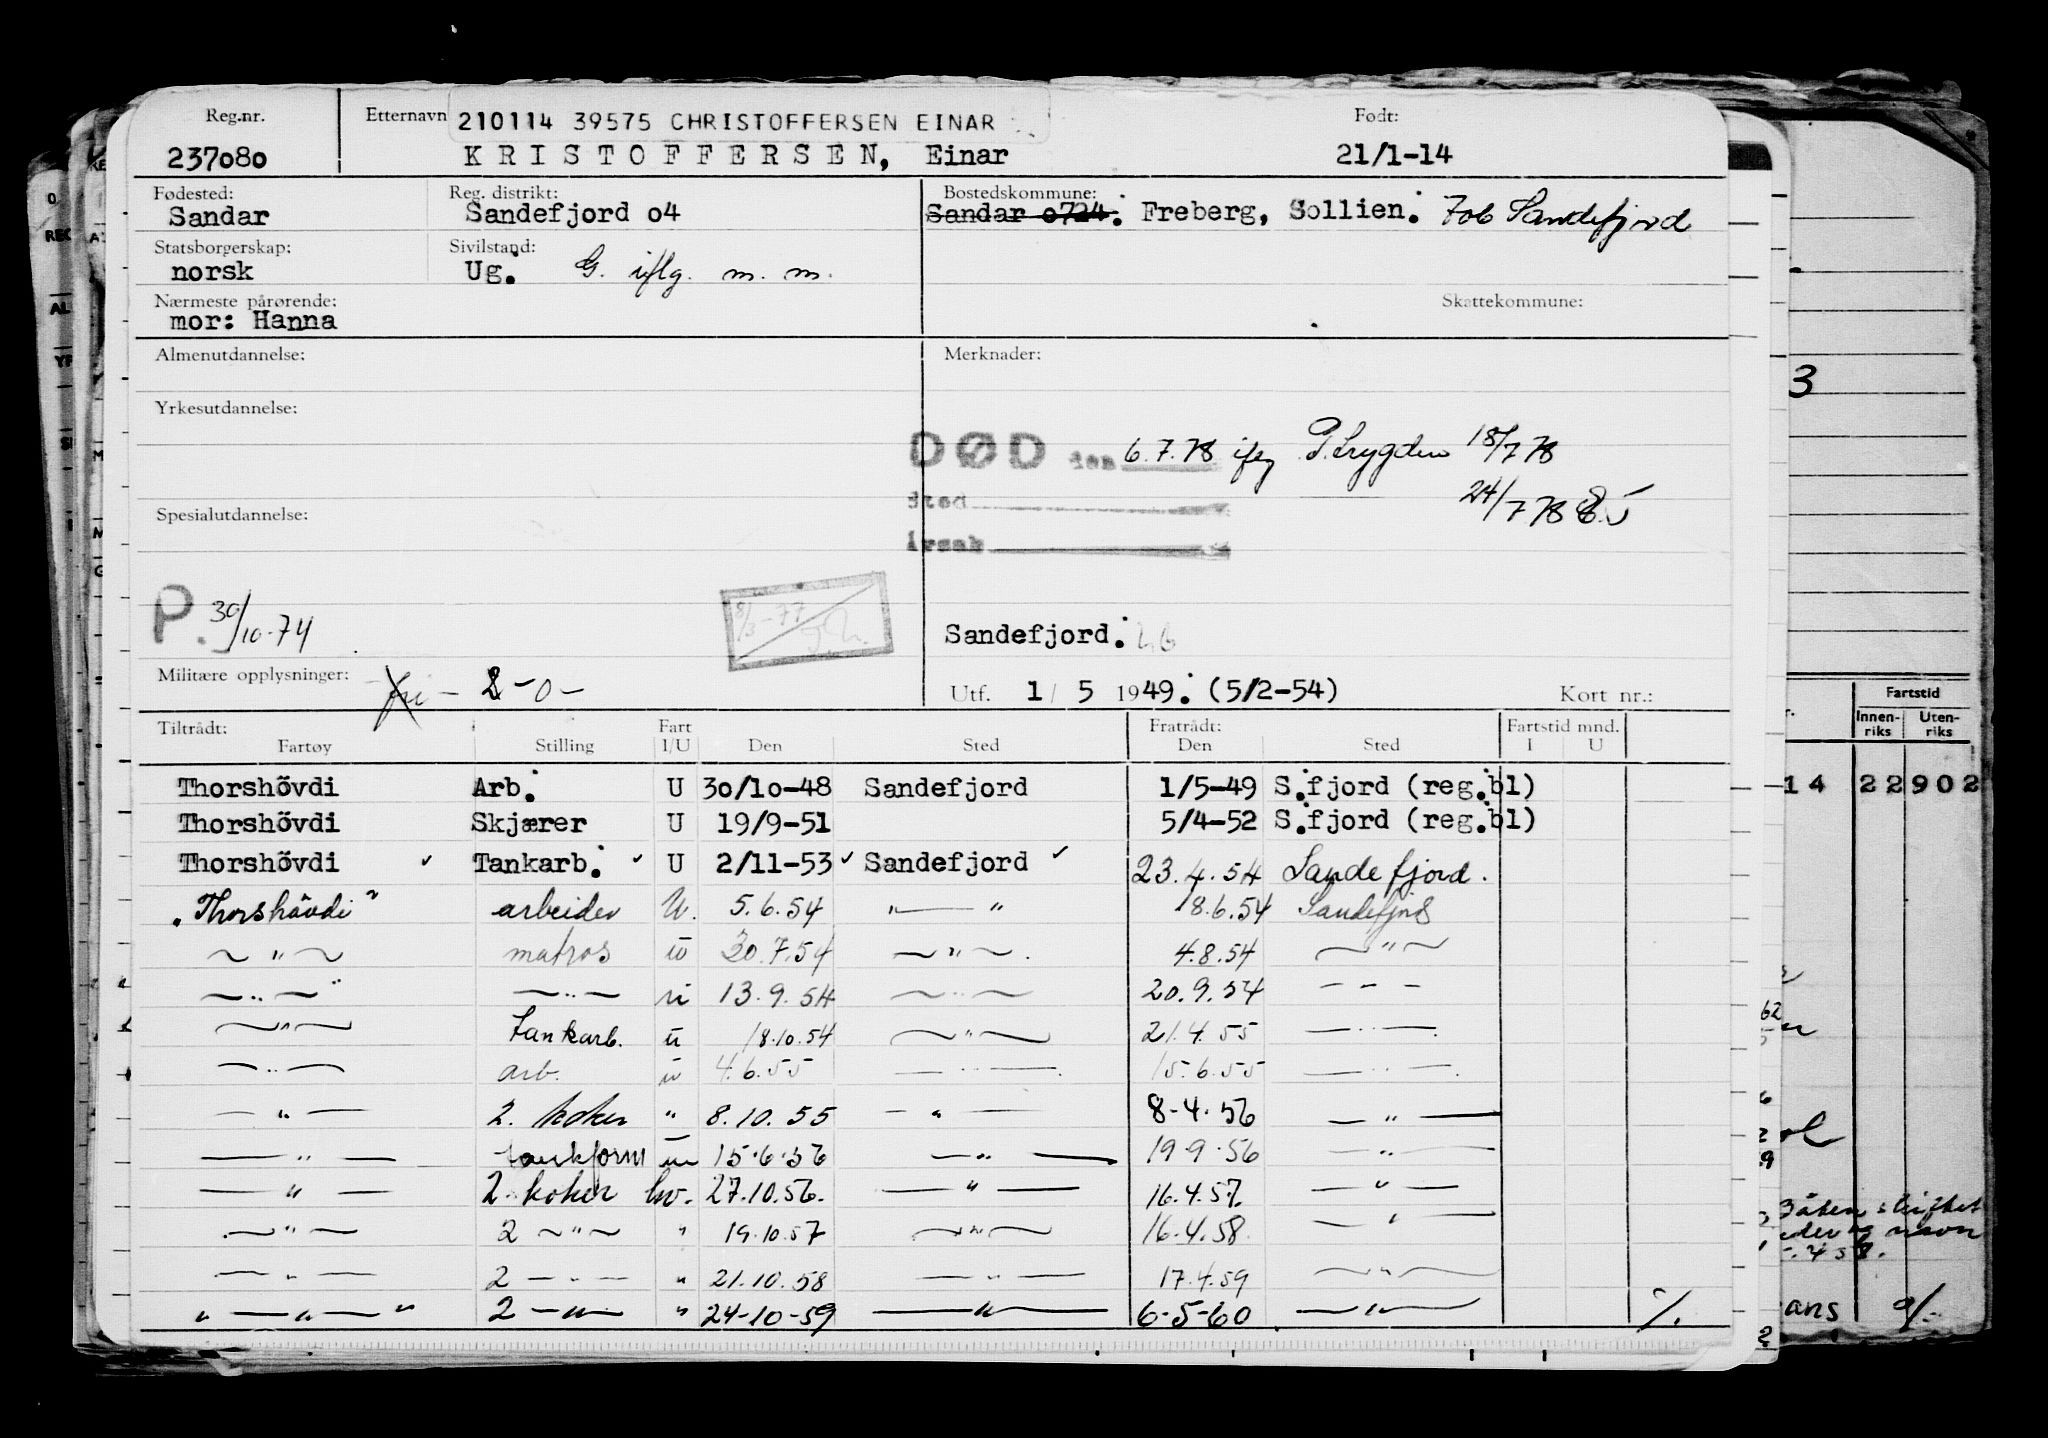 Reg.nr. Etternavn 210114 39575 CHRISTOFFERSEN EINAR Født:
237080 KRISTOFFERSEN, Einar 21/1-14
Fødested: Reg. distrikt: Bostedskommune:
Sandar Sandefjord o4 Sandar o724. Freberg, Sollien. 706 Sandefjord
Statsborgerskap: Sivilstand:
norsk Ug. G. iflg. m. m.
Nærmeste pårørende: Skattekommune:
mor: Hanna
Almenutdannelse: Merknader:
Yrkesutdannelse:
DØD den 6.7.78 ifg P.trygden 18/7 78
Sted 24/7 78
Spesialutdannelse:
Årsak
P. 30/10-74 8/3-77
Sandefjord.
Militære opplysninger: fri - 2 - 0 -
Utf. 1/5 1949. (5/2-54) Kort nr.:
Tiltrådt: Fart Fratrådt: Fartstid mnd.
Fartøy Stilling I/U Den Sted Den Sted I U
Thorshövdi Arb. U 30/10-48 Sandefjord 1/5-49 S.fjord (reg.bl)
Thorshövdi Skjærer U 19/9-51 5/4-52 S.fjord (reg.bl)
Thorshövdi ✓ Tankarb. ✓ U 2/11-53 ✓ Sandefjord ✓ 23.4.54 Sandefjord.
"Thorshövdi" arbeider U. 5.6.54 — " 18.6.54 Sandefjord
~ " ~ matros u 30.7.54 ~ " ~ . 4.8.54 ~ " ~
~ " ~ — " — u 13.9.54 ~ " ~ 20.9.54 - - -
~ " ~ Tankarb. u 18.10.54 ~ " ~ 21.4.55 — " —
— " — arb. u 4.6.55 — " — 15.6.55 — " —
— " — 2. koker " 8.10.55 — " — 8-4.56 — " —
— " — u 15.6.56 — " — 19.9.56 — " —
— " — 2 koker hv. 27.10.56. — " — 16.4.57. — " —
~ " ~ 2 ~ " ~ " 19.10.57 ~ " ~ 16.4.58. — " —
— " — 2 — " — " 21.10.58 — " — 17.4.59 ~ " ~
" — " — " 2 — " — " 24-10-59 — " — 6-5-60 — " — %.
3
Fartstid
Innenriks Utenriks
14 22902
ans